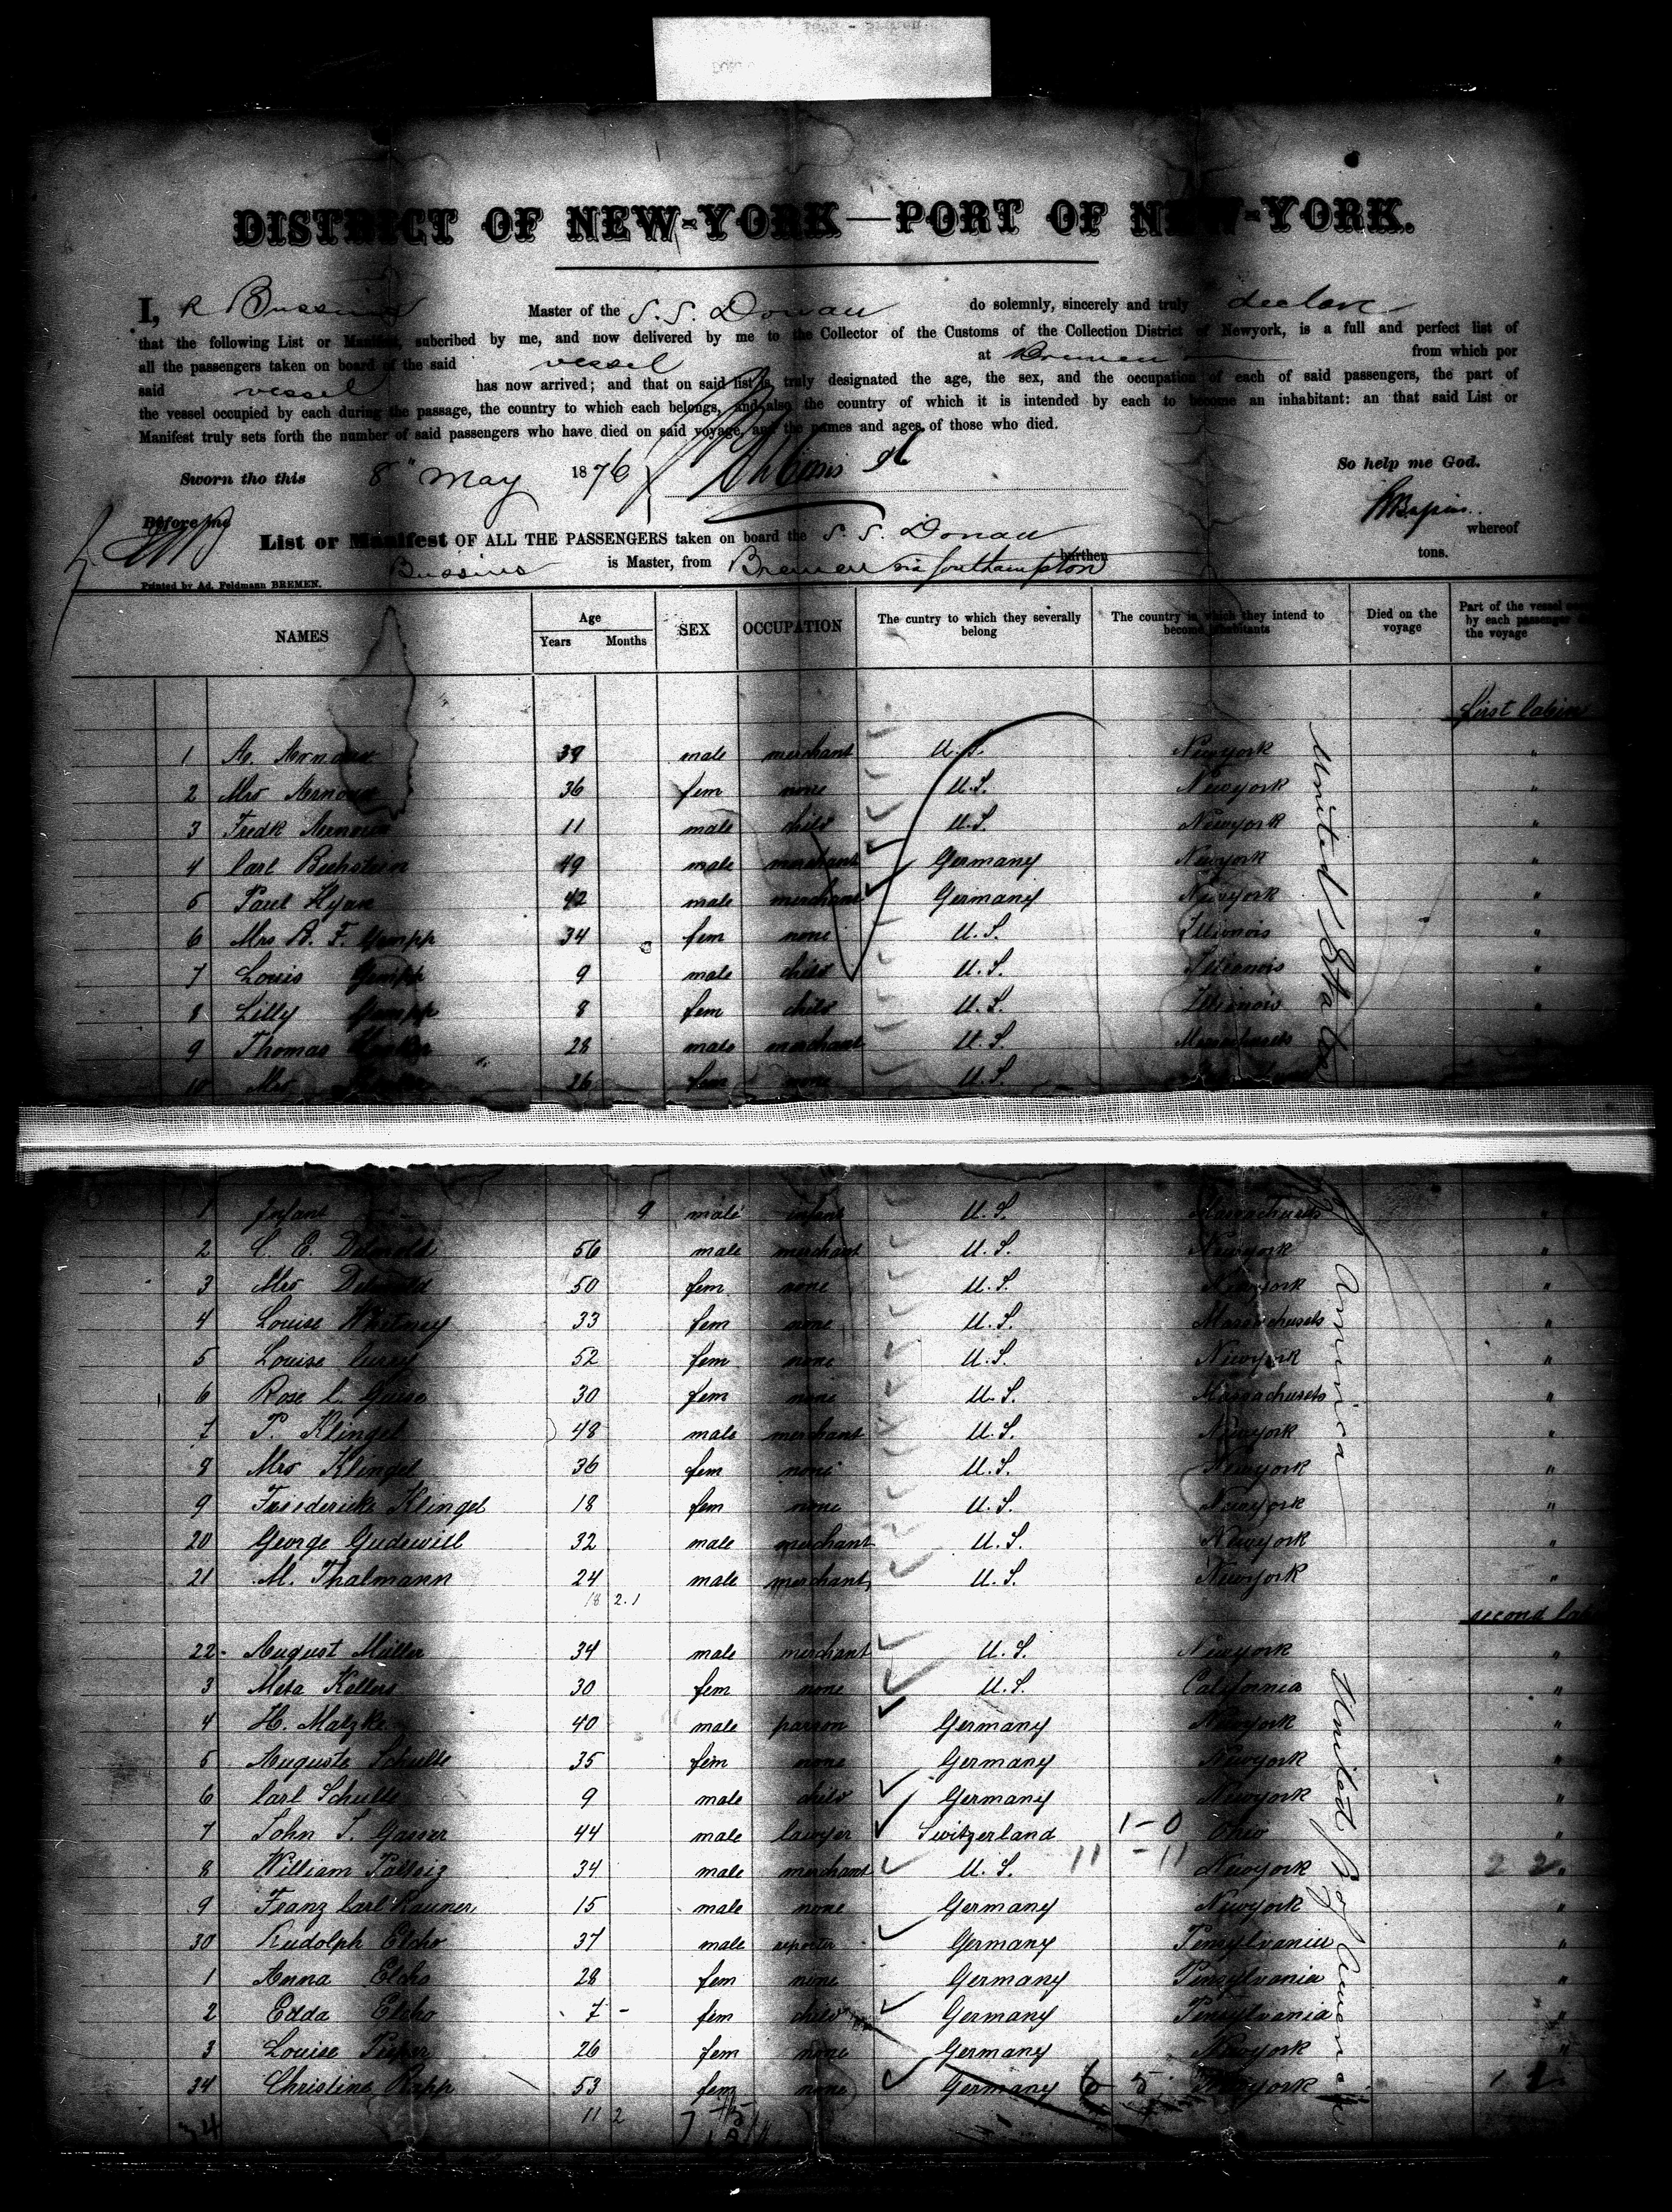 DISTRICT OF NEW-YORK—PORT OF NEW-YORK.
I, R Bussius Master of the S. S. Donau do solemnly, sincerely and truly declare
that the following List or Manifest, subcribed by me, and now delivered by me to the Collector of the Customs of the Collection District of Newyork, is a full and perfect list of
all the passengers taken on board of the said vessel at Bremen from which por
said vessel has now arrived; and that on said list is truly designated the age, the sex, and the occupation of each of said passengers, the part of
the vessel occupied by each during the passage, the country to which each belongs, and also the country of which it is intended by each to become an inhabitant: an that said List or
Manifest truly sets forth the number of said passengers who have died on said voyage, and the names and ages of those who died.
Sworn tho this 8" May 1876 So help me God.
Before me
List or Manifest OF ALL THE PASSENGERS taken on board the S. S. Donau whereof
Bussius is Master, from Bremen via Southampton burthen tons.
Printed by Ad. Feldmann BREMEN.
NAMES Age Years Months SEX OCCUPATION The cuntry to which they severally belong The country in which they intend to become inhabitants Died on the voyage Part of the vessel by each passenger the voyage
first Cabin
1 A. 39 male merchant U.S. Newyork "
2 Mrs 36 fem none U.S. Newyork "
3 Fredk 11 male child U.S. Newyork "
4 Carl Bechstein 49 male merchant Germany Newyork "
5 Paul Hyan 42 male merchant Germany Newyork "
6 Mrs A. F. Gempp 34 fem none U.S. Illinois "
7 Louis Gempp 9 male child U.S. Illinois "
8 Lilly Gempp 8 fem child U.S. Illinois "
9 Thomas 28 male merchant U.S. Massachusets "
10 Mrs 26 fem none U.S.
United States
1 Infant 9 male infant U.S. Massachusets "
2 C. E. Detmold 56 male merchant U.S. Newyork "
3 Mrs Detmold 50 fem none U.S. Newyork "
4 Louise Whitney 33 fem none U.S. Massachusets "
5 Louise 52 fem none U.S. Newyork "
6 Rose L. 30 fem none U.S. Massachusets "
7 P. Klingel 48 male merchant U.S. Newyork "
8 Mrs Klingel 36 fem none U.S. Newyork "
9 Friedericke Klingel 18 fem none U.S. Newyork "
20 George Gudewill 32 male merchant U.S. Newyork "
21 M. Thalmann 24 male merchant U.S. Newyork "
America
18 2.1
second Cab
22 August Müller 34 male merchant U.S. Newyork "
3 Meta Kellers 30 fem none U.S. California "
4 H. Matzke 40 male parson Germany Newyork "
5 Auguste Schulte 35 fem none Germany Newyork "
6 Carl Schulte 9 male child Germany Newyork "
7 John T. Gasser 44 male lawyer Switzerland 1-0 Ohio "
8 William 34 male merchant U.S. 11-11 Newyork 22 "
9 Franz Carl Rauner 15 male none Germany Newyork "
30 Rudolph Elcho 37 male reporter Germany Pensylvania "
1 Anna Elcho 28 fem none Germany Pensylvania "
2 Edda Elcho 7 - fem child Germany Pensylvania "
3 Louise 26 fem none Germany Newyork "
34 Christine Rapp 53 fem none Germany 6 5 Newyork
United St of America
11 2
34